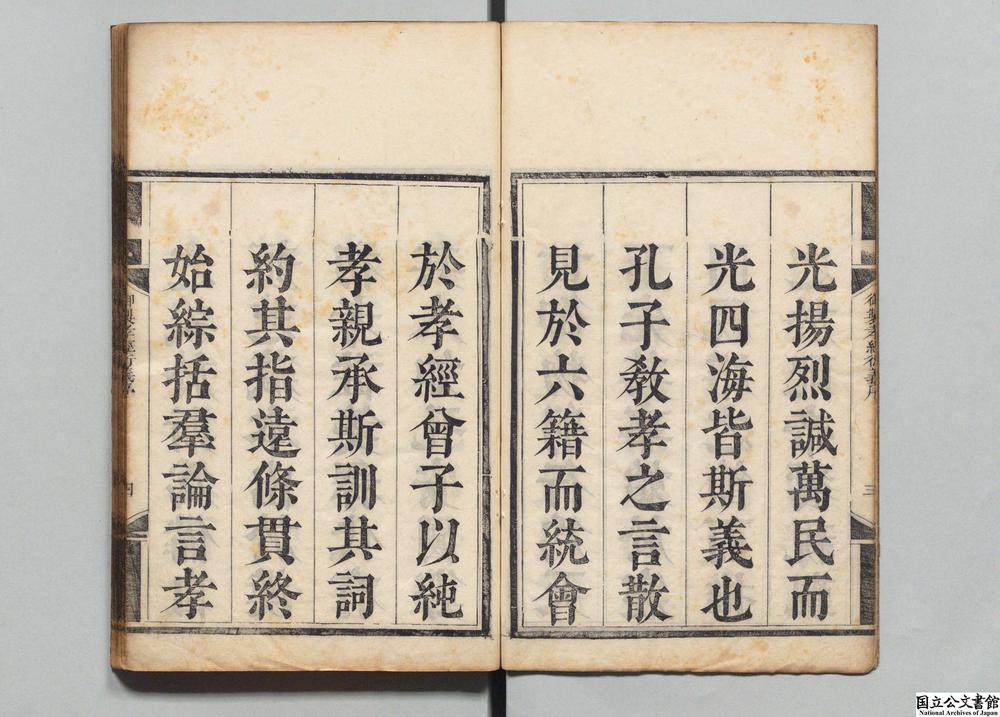 光揚烈諴萬民而
光四海皆斯義也
孔子敎孝之言散
見於六籍而統會
於孝經曾子以純
孝親承斯訓其詞
約其指遠條貫終
始綜括羣論言孝
三
四
国立公文書館
National Archives of Japan